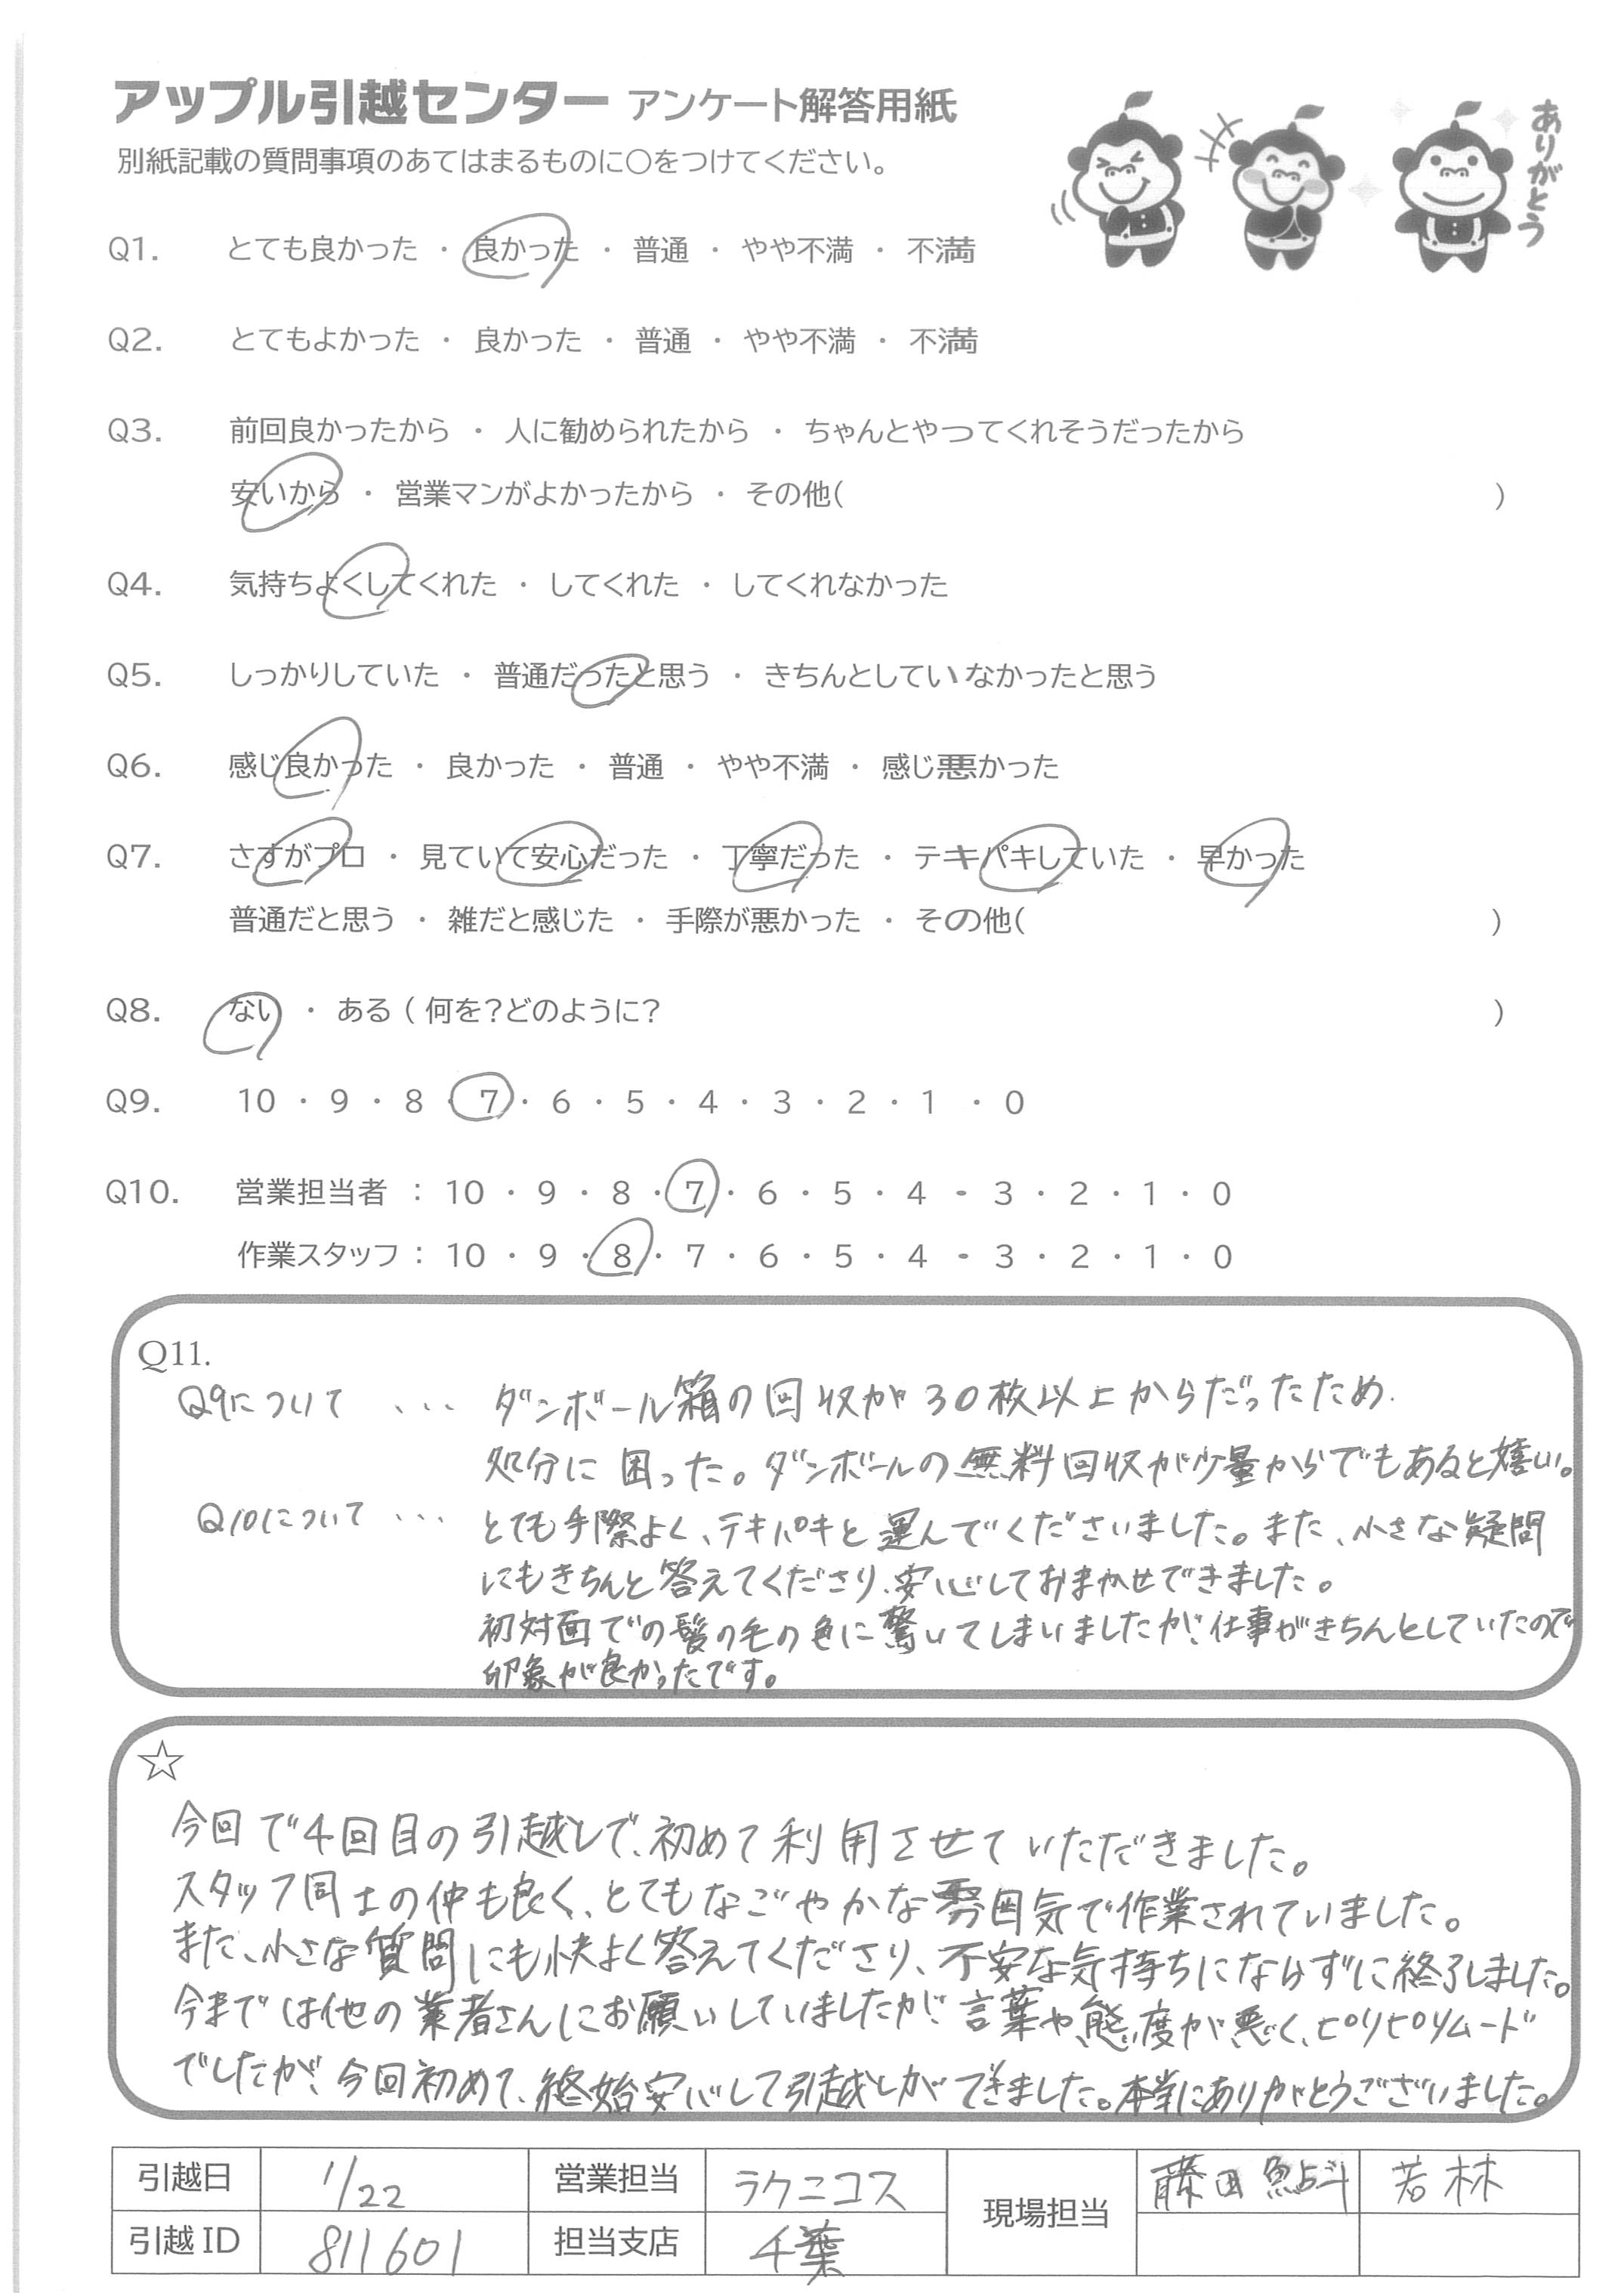 アップル引越センター アンケート解答用紙
ありがとう
別紙記載の質問事項のあてはまるものに〇をつけてください。
Q1. とても良かった ・ 良かった ・ 普通 ・ やや不満 ・ 不満
Q2. とてもよかった ・ 良かった ・ 普通 ・ やや不満 ・ 不満
Q3. 前回良かったから ・ 人に勧められたから ・ ちゃんとやってくれそうだったから
安いから ・ 営業マンがよかったから ・ その他( )
Q4. 気持ちよくしてくれた ・ してくれた ・ してくれなかった
Q5. しっかりしていた ・ 普通だったと思う ・ きちんとしていなかったと思う
Q6. 感じ良かった ・ 良かった ・ 普通 ・ やや不満 ・ 感じ悪かった
Q7. さすがプロ ・ 見ていて安心だった ・ 丁寧だった ・ テキパキしていた ・ 早かった
普通だと思う ・ 雑だと感じた ・ 手際が悪かった ・ その他( )
Q8. ない ・ ある ( 何を?どのように? )
Q9. 10 ・ 9 ・ 8 ・ 7 ・ 6 ・ 5 ・ 4 ・ 3 ・ 2 ・ 1 ・ 0
Q10. 営業担当者 : 10 ・ 9 ・ 8 ・ 7 ・ 6 ・ 5 ・ 4 ・ 3 ・ 2 ・ 1 ・ 0
作業スタッフ : 10 ・ 9 ・ 8 ・ 7 ・ 6 ・ 5 ・ 4 ・ 3 ・ 2 ・ 1 ・ 0
Q11.
Q9について ... ダンボール箱の回収が30枚以上からだったため、
処分に困った。ダンボールの無料回収が少量からでもあると嬉しい。
Q10について ... とても手際よく、テキパキと運んでくださいました。また、小さな疑問
にもきちんと答えてくださり、安心しておまかせできました。
初対面での髪の毛の色に驚いてしまいましたが、仕事がきちんとしていたので
印象が良かったです。
☆
今回で4回目の引越しで、初めて利用させていただきました。
スタッフ同士の仲も良く、とてもなごやかな雰囲気で作業されていました。
また、小さな質問にも快よく答えてくださり、不安な気持ちにならずに終了しました。
今までは他の業者さんにお願いしていましたが、言葉や態度が悪く、ピリピリムード
でしたが、今回初めて、終始安心して引越しができました。本当にありがとうございました。
引越日 1/22 営業担当 ラクニコス 現場担当 藤田鮎斗 若林
引越ID 811601 担当支店 千葉